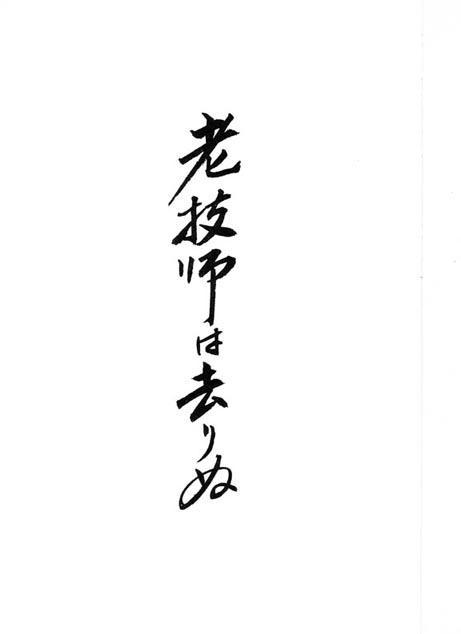 老技師は去りぬ